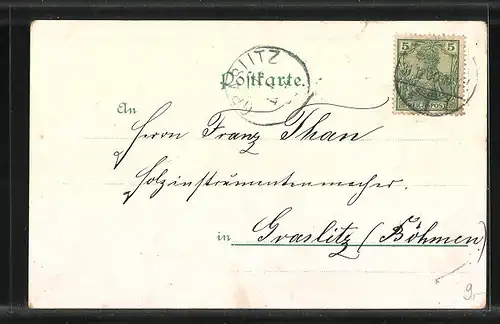 GRASLITZ
Postkarte.
5 5
REICHSPOST
An
Herrn Franz Than
Holzinstrumentenmacher.
in Graslitz (Böhmen)
9.-